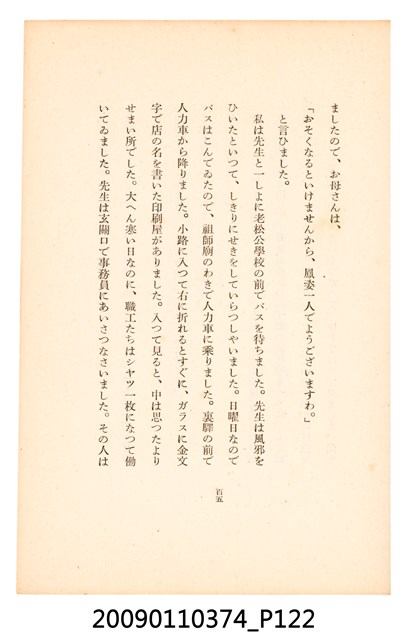 ましたので、お母さんは、
「おそくなるといけませんから、鳳姿一人でようございますわ。」
と言ひました。
私は先生と一しよに老松公學校の前でバスを待ちました。先生は風邪を
ひいたといつて、しきりにせきをしていらつしやいました。日曜日なので
バスはこんでゐたので、祖師廟のわきで人力車に乘りました。裏驛の前で
人力車から降りました。小路に入つて右に折れるとすぐに、ガラスに金文
字で店の名を書いた印刷屋がありました。入つて見ると、中は思つたより
せまい所でした。大へん寒い日なのに、職工たちはシヤツ一枚になつて働
いてゐました。先生は玄關口で事務員にあいさつなさいました。その人は
百五
20090110374_P122